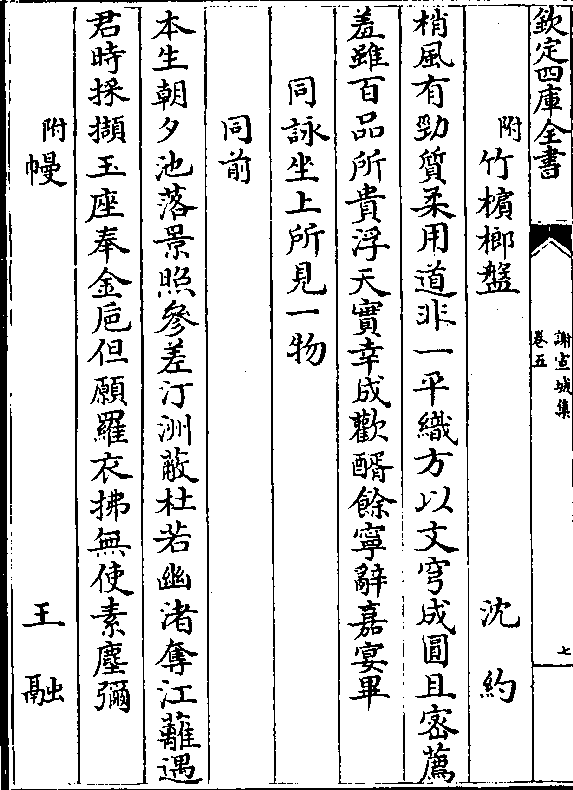 欽定四庫全書
謝宣城集
卷五
七
附竹檳榔盤 沈約
梢風有勁質柔用道非一平織方以文穹成圓且密薦
羞雖百品所貴浮天實幸成歡醑餘寧辭嘉宴畢
同詠坐上所見一物
同前
本生朝夕池落景照參差汀洲蔽杜若幽渚奪江蘺遇
君時採擷玉座奉金巵但願羅衣拂無使素塵彌
附幔 王融